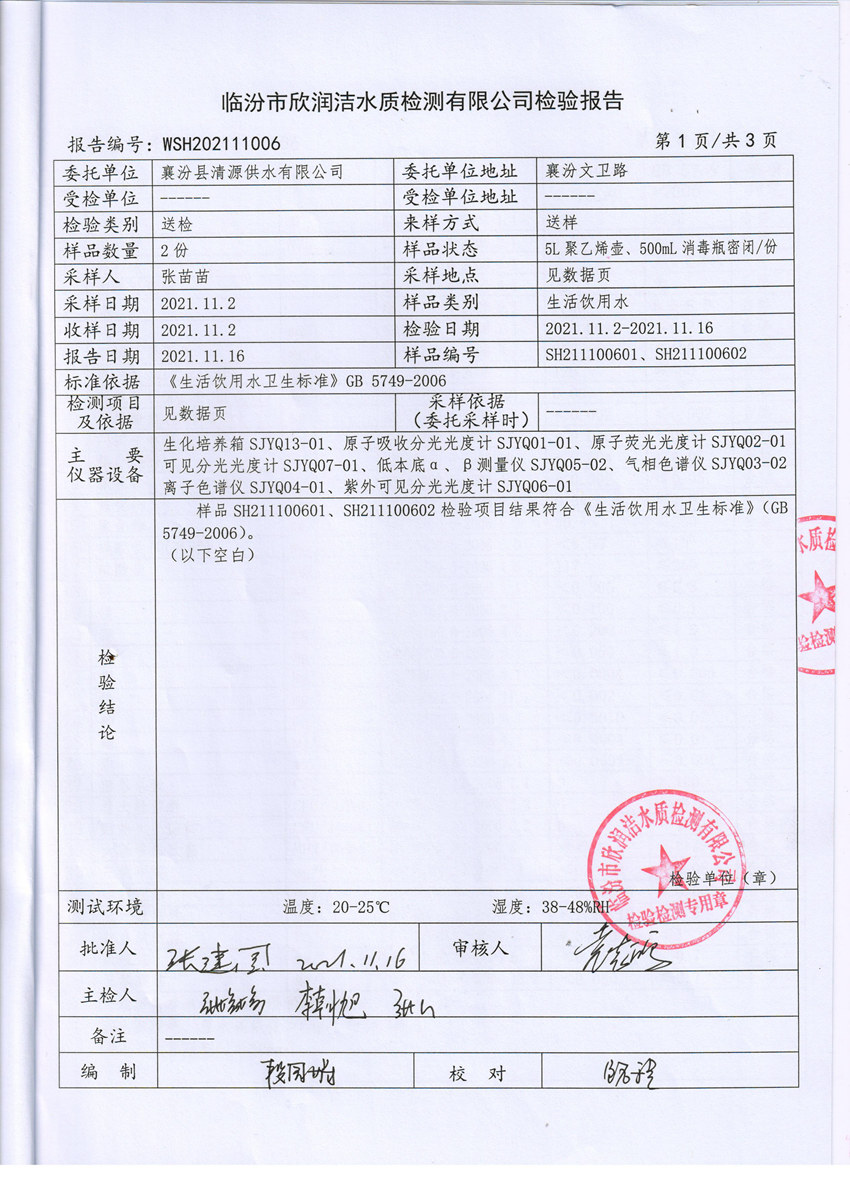 临汾市欣润洁水质检测有限公司检验报告
报告编号：WSH202111006 第 1 页/共 3 页
委托单位 襄汾县清源供水有限公司 委托单位地址 襄汾文卫路
受检单位 ------ 受检单位地址 ------
检验类别 送检 来样方式 送样
样品数量 2 份 样品状态 5L 聚乙烯壶、500mL 消毒瓶密闭/份
采样人 张苗苗 采样地点 见数据页
采样日期 2021.11.2 样品类别 生活饮用水
收样日期 2021.11.2 检验日期 2021.11.2-2021.11.16
报告日期 2021.11.16 样品编号 SH211100601、SH211100602
标准依据 《生活饮用水卫生标准》GB 5749-2006
检测项目及依据 见数据页 采样依据（委托采样时） ------
主要仪器设备 生化培养箱 SJYQ13-01、原子吸收分光光度计 SJYQ01-01、原子荧光光度计 SJYQ02-01
可见分光光度计 SJYQ07-01、低本底α、β测量仪 SJYQ05-02、气相色谱仪 SJYQ03-02
离子色谱仪 SJYQ04-01、紫外可见分光光度计 SJYQ06-01
样品 SH211100601、SH211100602 检验项目结果符合《生活饮用水卫生标准》（GB
5749-2006）。
（以下空白）
水质检
验检测
检验结论
临汾市欣润洁水质检测有限公司
检验检测专用章
检验单位（章）
测试环境 温度：20-25℃ 湿度：38-48%RH
批准人 2021.11.16 审核人
主检人
备注 ------
编 制 校 对